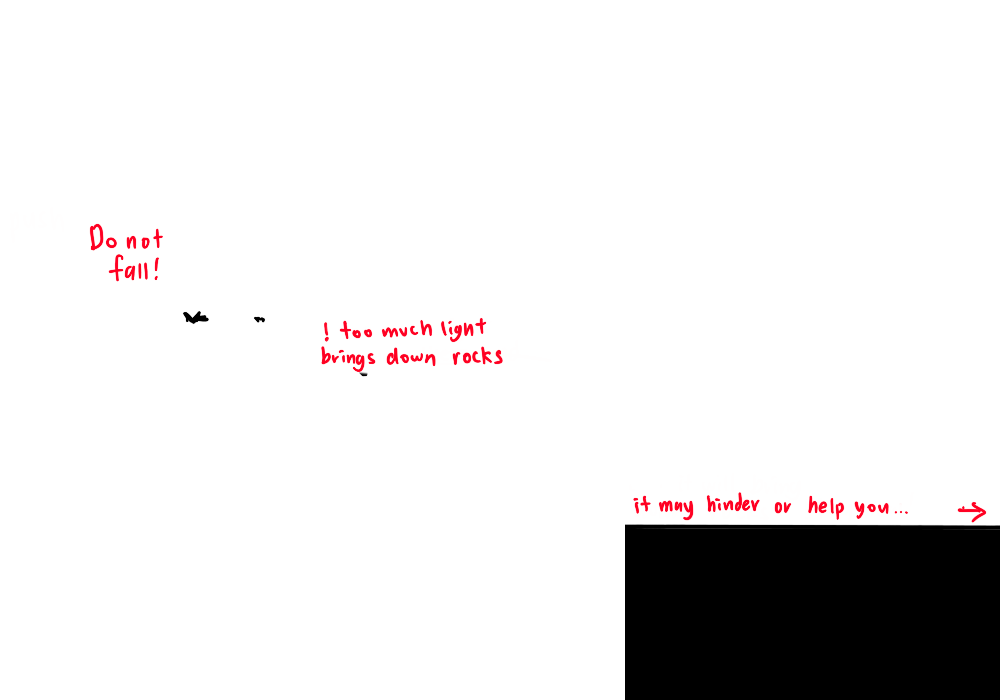 Do not
fall!
! too much light
brings down rocks
it may hinder or help you...